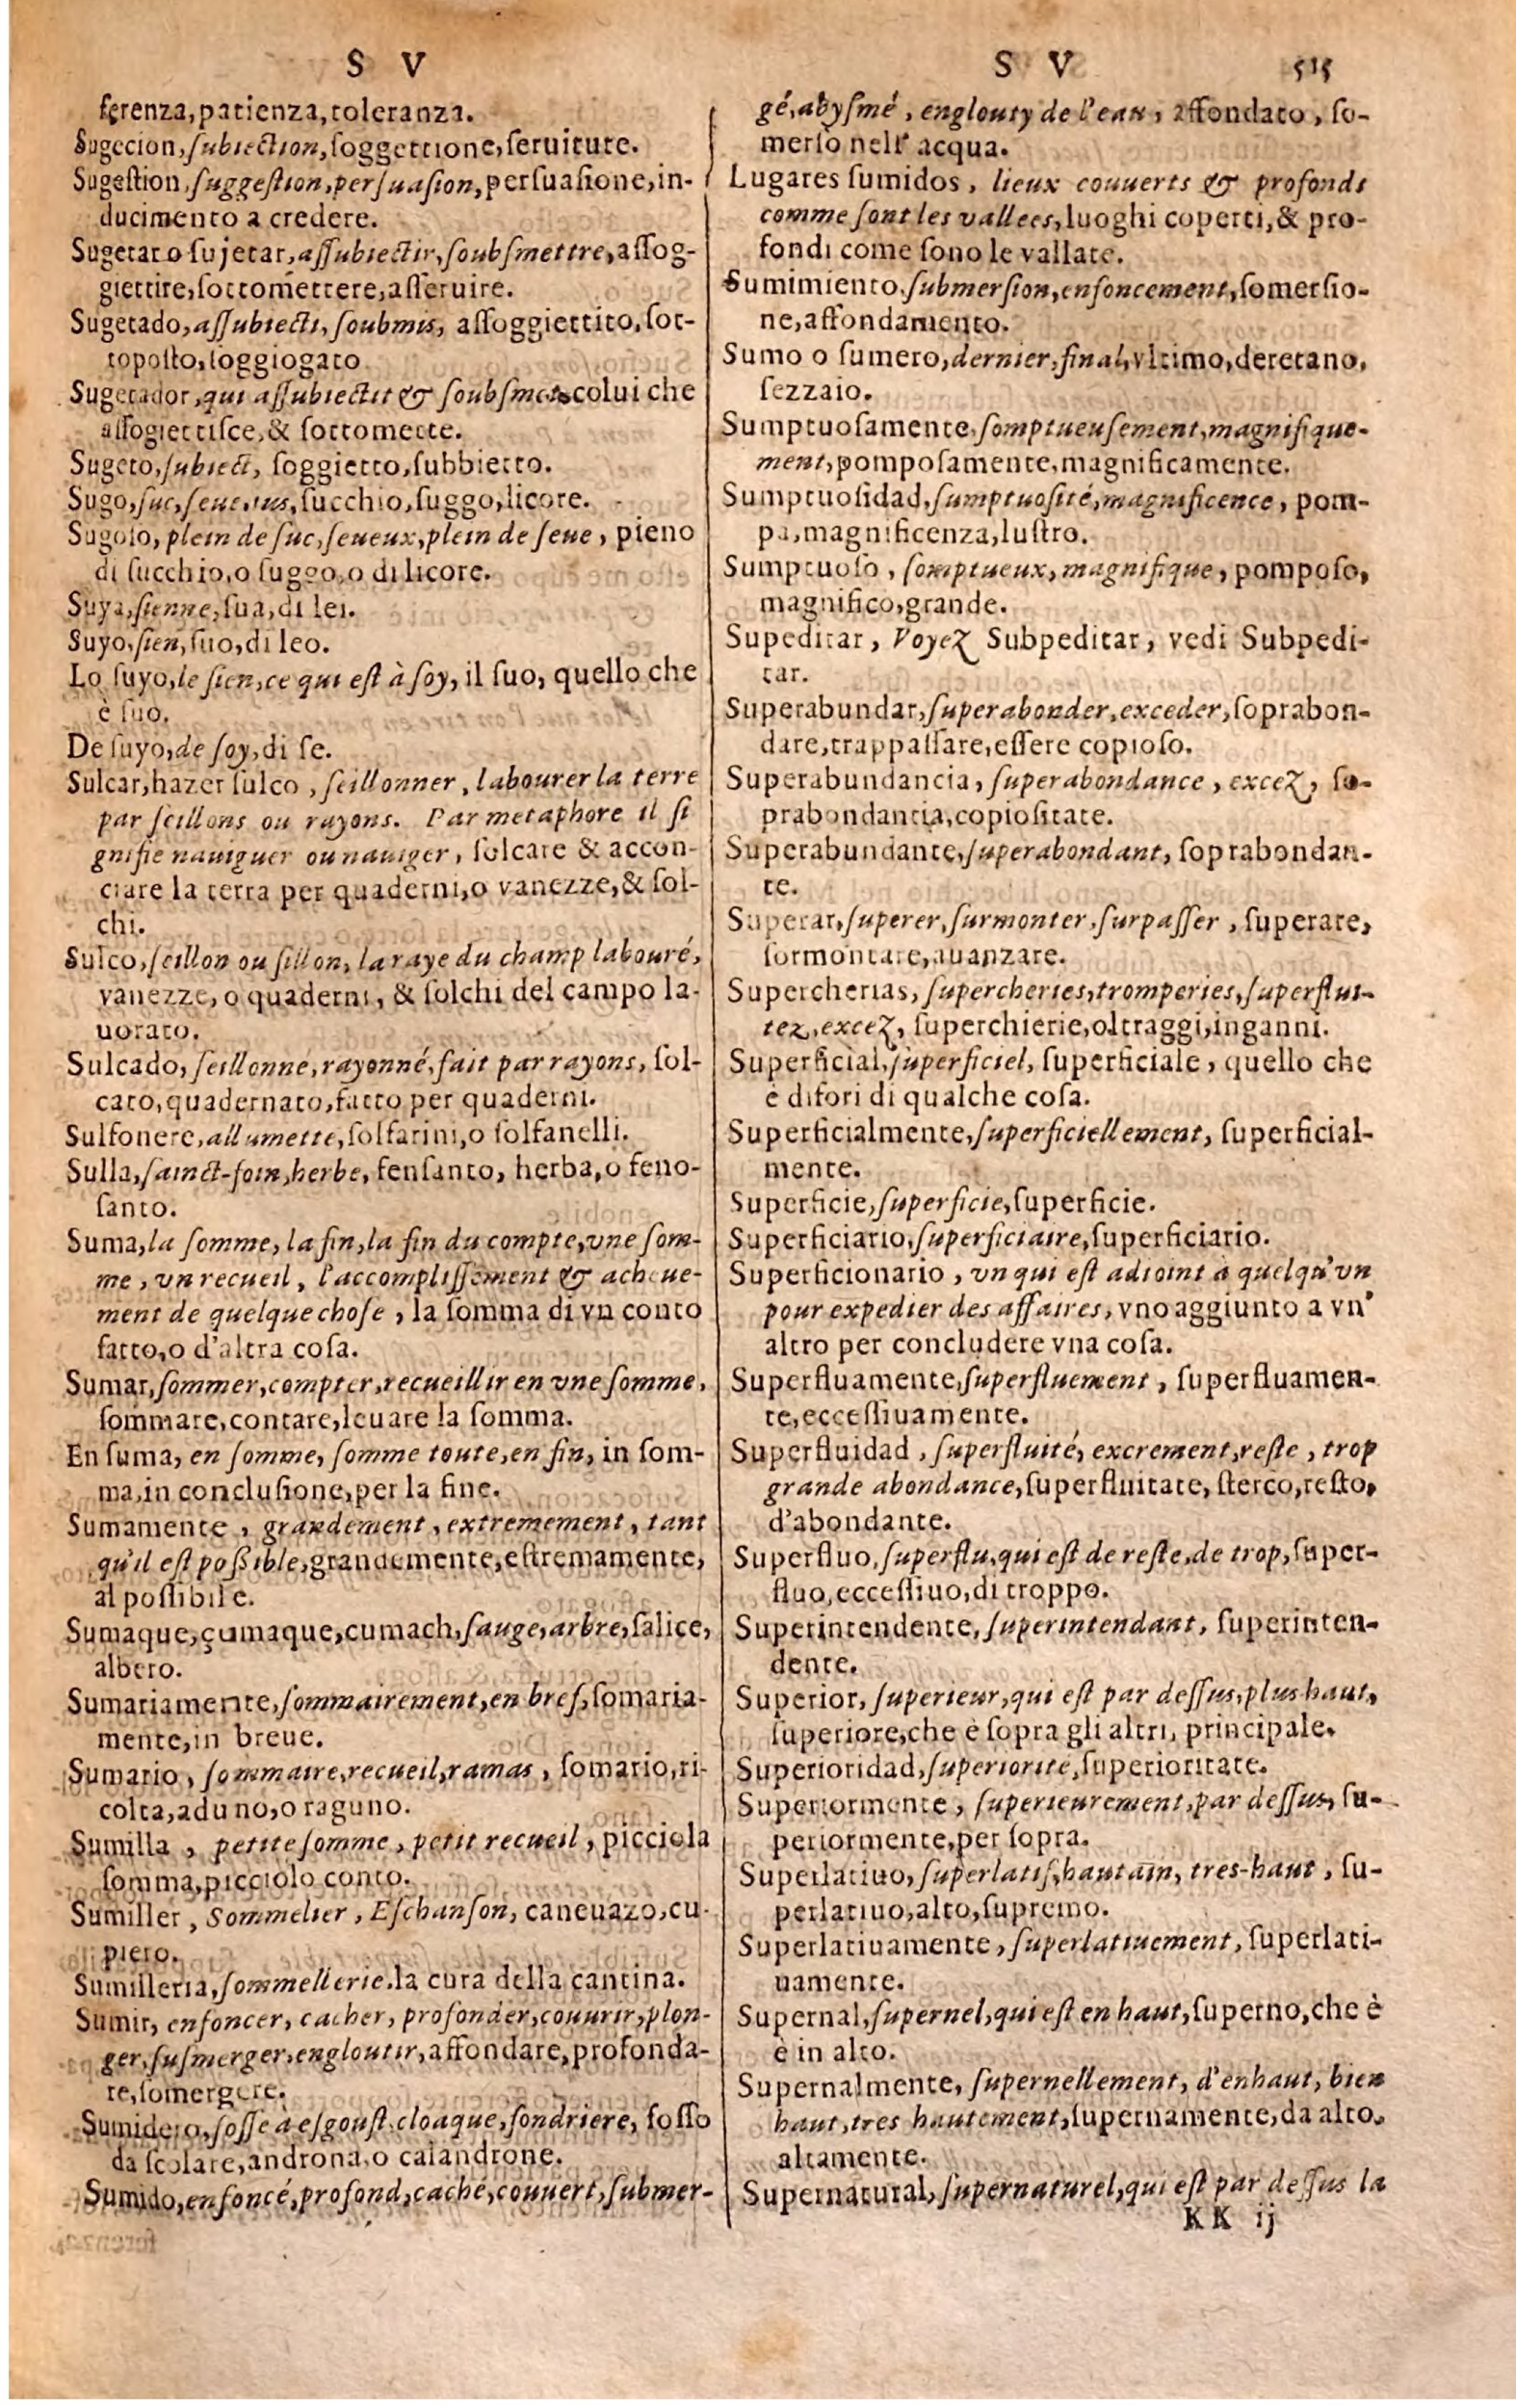 S V
ferenza, patienza, toleranza.
Sugecion, ſubiection, ſoggettione, ſeruitute.
Sugestion, ſuggeſtion, perſuaſion, perſuaſione, in-
ducimento a credere.
Sugetar o ſujetar, aſſubiectir, ſoubſmettre, aſſog-
giettire, ſottomettere, aſſeruire.
Sugetado, aſſubiecti, ſoubmis, aſſoggiettito, ſot-
topoſto, ſoggiogato
Sugetador, qui aſſubiectit & ſoubſmet, colui che
aſſogiettiſce, & ſottomette.
Sugeto, ſubiect, ſoggietto, ſubbietto.
Sugo, ſuc, ſeue, ius, ſucchio, ſuggo, licore.
Sugoſo, plein de ſuc, ſeueux, plein de ſeue, pieno
di ſucchio, o ſuggo, o di licore.
Suya, ſienne, ſua, di lei.
Suyo, ſien, ſuo, di leo.
Lo ſuyo, le ſien, ce qui eſt à ſoy, il ſuo, quello che
è ſuo.
De ſuyo, de ſoy, di ſe.
Sulcar, hazer ſulco, ſeillonner, labourer la terre
par ſeillons ou rayons. Par metaphore il ſi
gnifie nauiguer ou nauiger, ſolcare & accon-
ciare la terra per quaderni, o vanezze, & ſol-
chi.
Sulco, ſeillon ou ſillon, la raye du champ labouré,
vanezze, o quaderni, & ſolchi del campo la-
uorato.
Sulcado, ſeillonné, rayonné, fait par rayons, ſol-
cato, quadernato, fatto per quaderni.
Sulfonere, allumette, ſolfarini, o ſolfanelli.
Sulla, ſainct-foin, herbe, fenſanto, herba, o feno-
ſanto.
Suma, la ſomme, la fin, la fin du compte, vne ſom-
me, vn recueil, l'accompliſſement & acheue-
ment de quelque choſe, la ſomma di vn conto
fatto, o d'altra coſa.
Sumar, ſommer, compter, recueillir en vne ſomme,
ſommare, contare, leuare la ſomma.
En ſuma, en ſomme, ſomme toute, en fin, in ſom-
ma, in concluſione, per la fine.
Sumamente, grandement, extremement, tant
qu'il eſt poßible, grandemente, eſtremamente,
al poſſibile.
Sumaque, çumaque, cumach, ſauge, arbre, ſalice,
albero.
Sumariamente, ſommairement, en bref, ſomaria-
mente, in breue.
Sumario, ſommaire, recueil, ramas, ſomario, ri-
colta, aduno, o raguno.
Sumilla, petite ſomme, petit recueil, picciola
ſomma, picciolo conto.
Sumiller, Sommelier, Eſchanſon, caneuazo, cu-
piero.
Sumilleria, ſommellerie, la cura della cantina.
Sumir, enfoncer, cacher, profonder, couurir, plon-
ger, ſuſmerger, engloutir, affondare, profonda-
re, ſomergere.
Sumidero, foſſe à eſgouſt, cloaque, fondriere, foſſo
da ſcolare, androna, o calandrone.
Sumido, enfoncé, profond, caché, couuert, ſubmer-
S V 515
gé, abyſmé, englouty de l'eau, affondato, ſo-
merſo nell' acqua.
Lugares ſumidos, lieux couuerts & profonds
comme ſont les vallees, luoghi coperti, & pro-
fondi come ſono le vallate.
Sumimiento, ſubmerſion, enfoncement, ſomerſio-
ne, affondamento.
Sumo o ſumero, dernier, final, vltimo, deretano,
ſezzaio.
Sumptuoſamente, ſomptueuſement, magnifique-
ment, pompoſamente, magnificamente.
Sumptuoſidad, ſumptuoſité, magnificence, pom-
pa, magnificenza, luſtro.
Sumptuoſo, ſomptueux, magnifique, pompoſo,
magnifico, grande.
Supeditar, Voyez Subpeditar, vedi Subpedi-
tar.
Superabundar, ſuperabonder, exceder, ſoprabon-
dare, trappaſſare, eſſere copioſo.
Superabundancia, ſuperabondance, excez, ſo-
prabondancia, copioſitate.
Superabundante, ſuperabondant, ſoprabondan-
te.
Superar, ſuperer, ſurmonter, ſurpaſſer, ſuperare,
ſormontare, auanzare.
Supercherias, ſupercheries, tromperies, ſuperflui-
tez, excez, ſuperchierie, oltraggi, inganni.
Superficial, ſuperficiel, ſuperficiale, quello che
è difori di qualche coſa.
Superficialmente, ſuperficiellement, ſuperficial-
mente.
Superficie, ſuperficie, ſuperficie.
Superficiario, ſuperficiaire, ſuperficiario.
Superficionario, vn qui eſt adioint à quelqu'vn
pour expedier des affaires, vno aggiunto a vn'
altro per concludere vna coſa.
Superfluamente, ſuperfluement, ſuperfluamen-
te, ecceſſiuamente.
Superfluidad, ſuperfluité, excrement, reſte, trop
grande abondance, ſuperfluitate, ſterco, reſto,
d'abondante.
Superfluo, ſuperflu, qui eſt de reſte, de trop, ſuper-
fluo, ecceſſiuo, di troppo.
Superintendente, ſuperintendant, ſuperinten-
dente.
Superior, ſuperieur, qui eſt par deſſus, plus haut,
ſuperiore, che è ſopra gli altri, principale.
Superioridad, ſuperiorite, ſuperioritate.
Superiormente, ſuperieurement, par deſſus, ſu-
periormente, per ſopra.
Superlatiuo, ſuperlatif, hautain, tres-haut, ſu-
perlatiuo, alto, ſupremo.
Superlatiuamente, ſuperlatiuement, ſuperlati-
uamente.
Supernal, ſupernel, qui eſt en haut, ſuperno, che è
è in alto.
Supernalmente, ſupernellement, d'enhaut, bien
haut, tres hautement, ſupernamente, da alto,
altamente.
Supernatural, ſupernaturel, qui eſt par deſſus la
KK ij